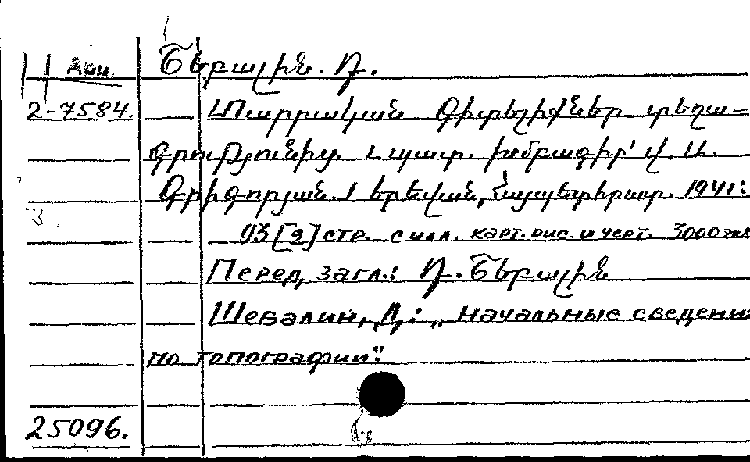 Շեվալին. Դ.
2-7584. Տարրական գիտելիքներ տեղա-
գրությունից. պատ. խմբագիր՝ Վ. Ա.
Գրիգորյան. Երեվան, Հայպետհրատ. 1941:
93 [2] стр. с илл. карт. рис. и черт. 3000 экз
Перед загл.: Դ. Շեվալին
Шевалин, Д.: „Начальные сведени
по топографии".
25096.